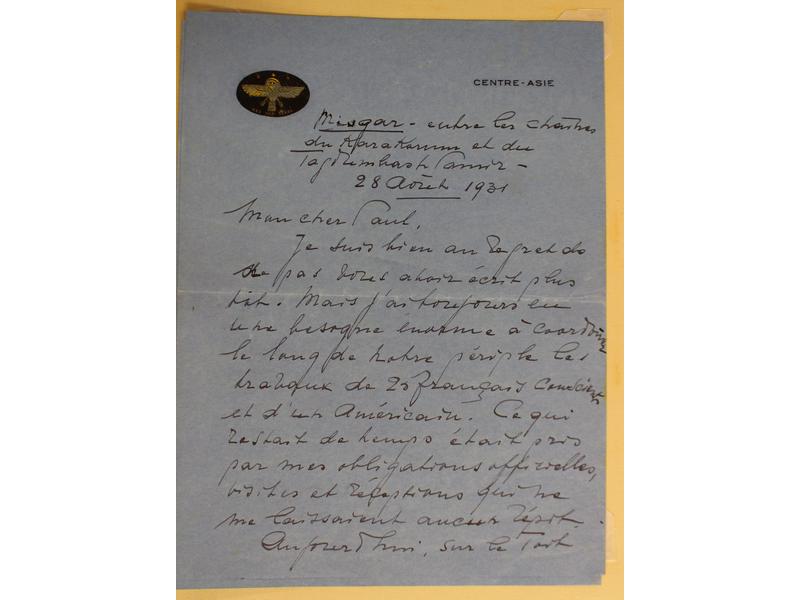 CENTRE-ASIE
Misgar - entre les chaînes
du Karakorum et du
Tagdumbash Pamir -
28 Août 1931
Mon cher Paul,
Je suis bien au regret de
ne pas vous avoir écrit plus
tôt. Mais j'ai toujours eu
une besogne énorme à coordonner
le long de notre périple les
travaux de 25 français conscients
et d'un Américain. Ce qui
restait de temps était pris
par mes obligations officielles,
visites et réceptions qui ne
me laissaient aucun répit.
Aujourd'hui, sur le Toit